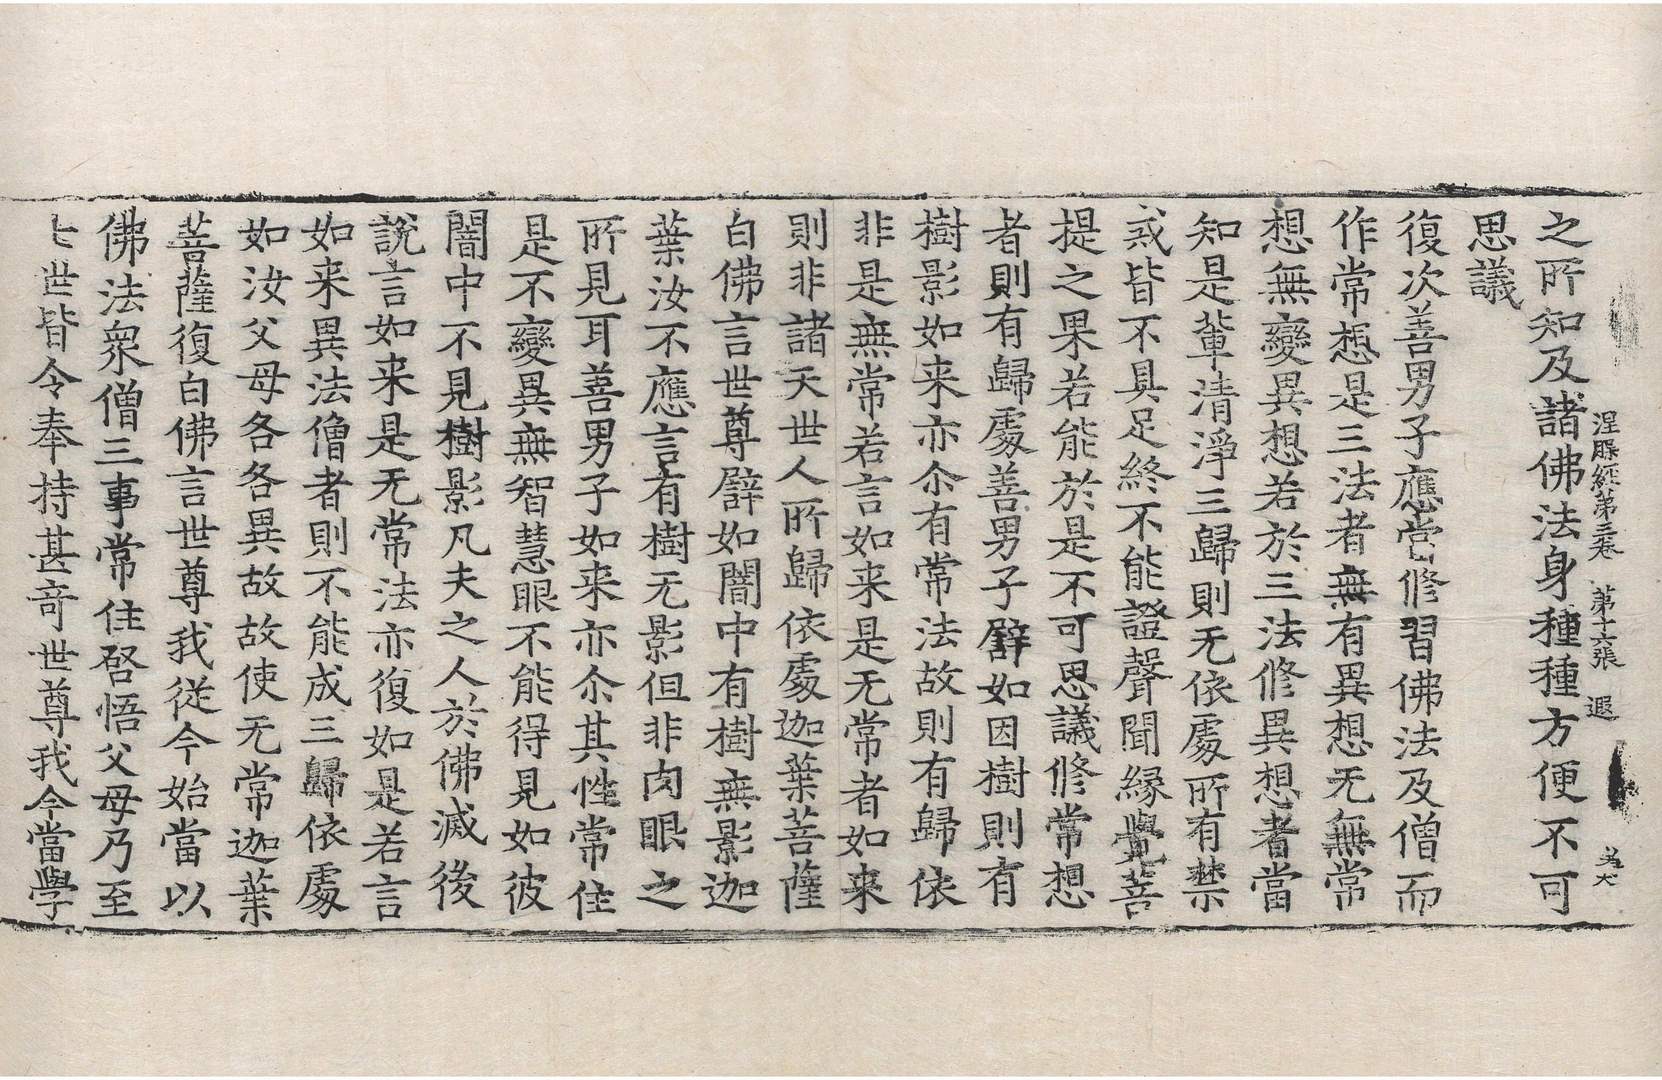 涅槃經第三卷 第十六張 遐
之所知及諸佛法身種種方便不可
思議
復次善男子應當修習佛法及僧而
作常想是三法者無有異想无無常
想無變異想若於三法修異想者當
知是輩清淨三歸則无依處所有禁
戒皆不具足終不能證聲聞緣覺菩
提之果若能於是不可思議修常想
者則有歸處善男子譬如因樹則有
樹影如来亦尒有常法故則有歸依
非是無常若言如来是无常者如来
則非諸天世人所歸依處迦葉菩薩
白佛言世尊譬如闇中有樹無影迦
葉汝不應言有樹无影但非肉眼之
所見耳善男子如来亦尒其性常住
是不變異無智慧眼不能得見如彼
闇中不見樹影凡夫之人於佛滅後
說言如来是无常法亦復如是若言
如来異法僧者則不能成三歸依處
如汝父母各各異故故使无常迦葉
菩薩復白佛言世尊我從今始當以
佛法衆僧三事常住啓悟父母乃至
七世皆令奉持甚奇世尊我今當學